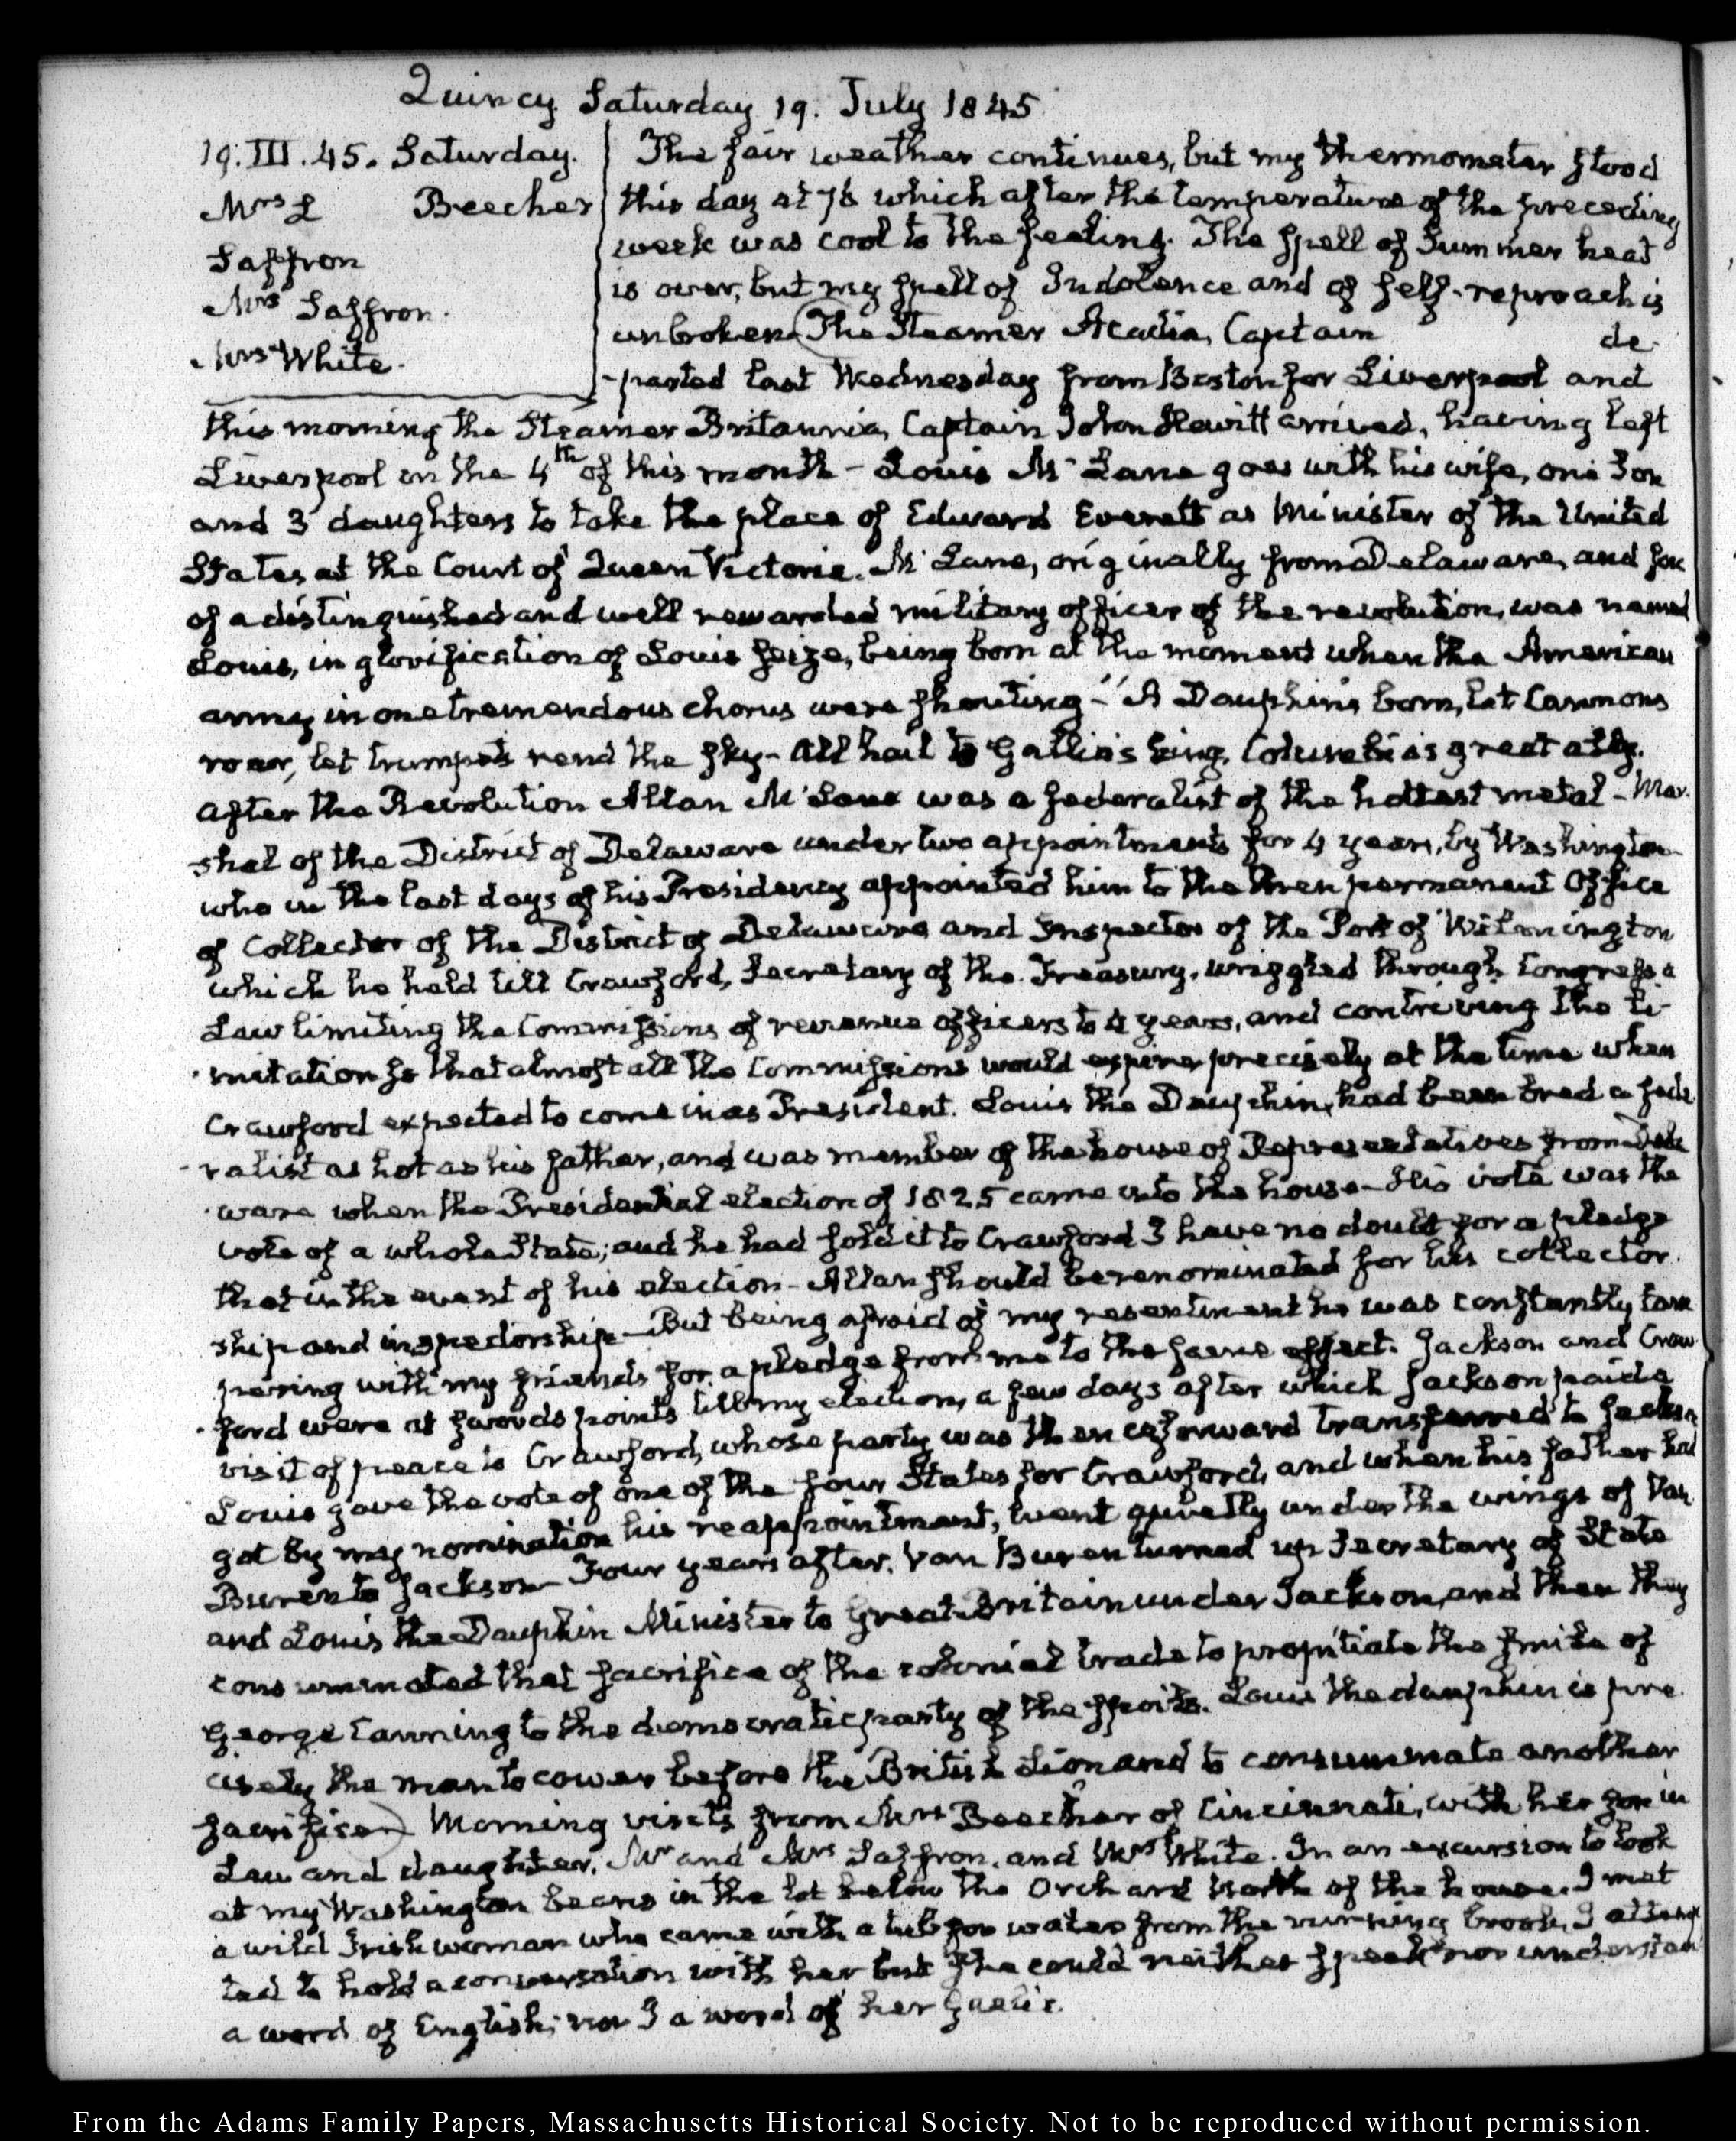 Quincy Saturday 19. July 1845
19. III. 45. Saturday.
Mrs L Beecher
Saffron
Mrs Saffron.
Mrs White.
The fair weather continues, but my thermometer stood
this day at 78 which after the temperature of the preceding
week was cool to the feeling. The spell of Summer heat
is over, but my spell of Indolence and of self-reproach is
unbroken. The Steamer Acadia, Captain de-
-parted last Wednesday from Boston for Liverpool and
this morning the Steamer Britannia, Captain John Hewitt arrived, having left
Liverpool on the 4th of this month — Louis McLane goes with his wife, one Son
and 3 daughters to take the place of Edward Everett as Minister of the United
States at the Court of Queen Victoria. McLane, originally from Delaware, and son
of a distinguished and well rewarded military officer of the revolution, was named
Louis, in glorification of Louis seize, being born at the moment when the American
army in one tremendous chorus were shouting — "A Dauphin's born, let Cannons
roar, let trumpets rend the sky — All hail to Gallia's king, Columbia's great ally.
After the Revolution Allan McLane was a federalist of the hottest metal — Mar-
shal of the District of Delaware under two appointments for 4 years, by Washington
who in the last days of his Presidency appointed him to the then permanent Office
of Collector of the District of Delaware and Inspector of the Port of Wilmington
which he held till Crawford, Secretary of the Treasury, wriggled through Congress a
Law limiting the Commissions of revenue officers to 4 years, and contriving the li-
-mitation so that almost all the Commissions would expire precisely at the time when
Crawford expected to come in as President. Louis the Dauphin, had been bred a fede-
-ralist as hot as his father, and was member of the house of Representatives from Dela-
-ware when the Presidential election of 1825 came into the house — His vote was the
vote of a whole State; and he had sold it to Crawford I have no doubt for a pledge
that in the event of his election — Allan should be renominated for his collector-
ship and inspectorship — But being afraid of my resentment he was constantly tam-
pering with my friends for a pledge from me to the same effect. Jackson and Craw-
-ford were at swords points till my election, a few days after which Jackson paid a
visit of peace to Crawford, whose party was thenceforward transferred to Jackson
Louis gave the vote of one of the four States for Crawford, and when his father had
got by my nomination his reappointment, went quietly under the wings of Van
Buren to Jackson — Four years after. Van Buren turned up Secretary of State
and Louis the Dauphin Minister to Great-Britain under Jackson, and then they
consummated that sacrifice of the colonial trade to propitiate the smile of
George Canning to the democratic party of the spoils. Louis the dauphin is pre-
cisely the man to cower before the British Lion and to consummate another
sacrifice. Morning visits from Mrs Beecher of Cincinnati, with her son in
Law and daughter, Mr and Mrs Saffron, and Mrs White. In an excursion to look
at my Washington beans in the lot below the Orchard North of the house. I met
a wild Irish woman who came with a tub for water from the running brook, I attemp-
ted to hold a conversation with her but she could neither speak nor understand
a word of English; nor I a word of her Gaelic.
From the Adams Family Papers, Massachusetts Historical Society. Not to be reproduced without permission.